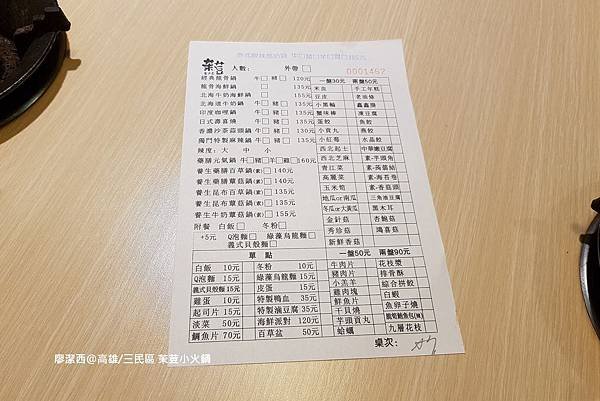 人數: 外帶 0001462
經典龍骨鍋 牛 豬 120元
龍骨海鮮鍋 135元
北海牛奶海鮮鍋 155元
北海道牛奶鍋 牛 豬 135元
印度咖哩鍋 牛 豬 135元
日式壽喜燒 牛 豬 135元
香濃沙茶蒜頭鍋 牛 豬 130元
獨門特製麻辣鍋 牛 豬 135元
辣度: 大 中 小
藥膳元氣鍋 牛 豬 羊 雞 160元
養生藥膳百草鍋(素) 140元
養生藥膳蕈菇鍋(素) 140元
養生昆布百草鍋(素) 135元
養生昆布蕈菇鍋(素) 135元
養生牛奶蕈菇鍋(素) 155元
附餐 白飯 冬粉
+5元 Q泡麵 綠藻烏龍麵
義式貝殼麵
一盤30元 兩盤50元
米血 手工年糕
豆皮 老油條
小黑輪 鑫鑫腸
蟹味棒 凍豆腐
蛋餃 魚餃
小貢丸 燕餃
小紅莓 水晶餃
西北起士 中華嫩豆腐
西北芝麻 素-芋頭角
青江菜 素-蒟蒻結
高麗菜 素-海苔卷
玉米筍 素-香菇頭
地瓜or南瓜 三角油豆腐
冬瓜or大黃瓜 黑木耳
金針菇 杏鮑菇
秀珍菇 鴻喜菇
新鮮香菇
單點
白飯 10元 冬粉 10元
Q泡麵 15元 綠藻烏龍麵 15元
義式貝殼麵 15元 皮蛋 15元
雞蛋 10元 特製鴨血 35元
起司片 15元 特製滷豆腐 35元
淡菜 50元 海鮮派對 120元
鯛魚片 70元 百草盆 50元
一盤50元 兩盤90元
牛肉片 花枝漿
豬肉片 排骨酥
小羔羊 綜合拼餃
雞肉塊 白蝦
鮮魚片 魚卵子燒
干貝燒
芋頭貢丸 九層花枝
蛤蠣
桌次:
廖潔西@高雄/三民區 茉荳小火鍋